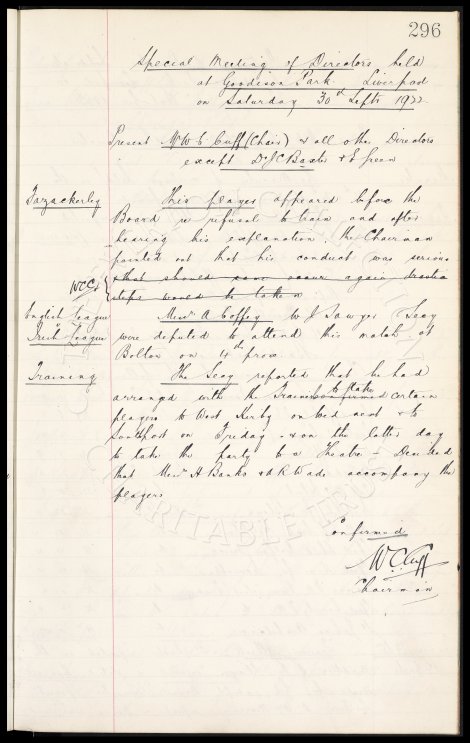 296
Special Meeting of Directors held
at Goodison Park Liverpool
on Saturday 30th Septr 1922
Present Mr W C Cuff (Chair) & all other Directors
except Dr J C Baxter & E Green
Fazackerley
This player appeared before the
Board re refusal to train and after
hearing his explanation, the Chairman
pointed out that his conduct was serious
& that should same occur again drastic
steps would be taken
WCC
English League
v
Irish League
Messrs A Coffey W J Sawyer Secy
were deputed to attend this match at
Bolton on 4th prox.
Training
The Secy reported that he had
arranged with the Trainer to take certain
players to West Kirby on Wed next & to
Southport on Friday & on the latter day
to take the party to a Theatre - Decided
that Messrs H Banks & A R Wade accompany the
players
Confirmed
W C Cuff
Chairman
CHARITABLE TRUST